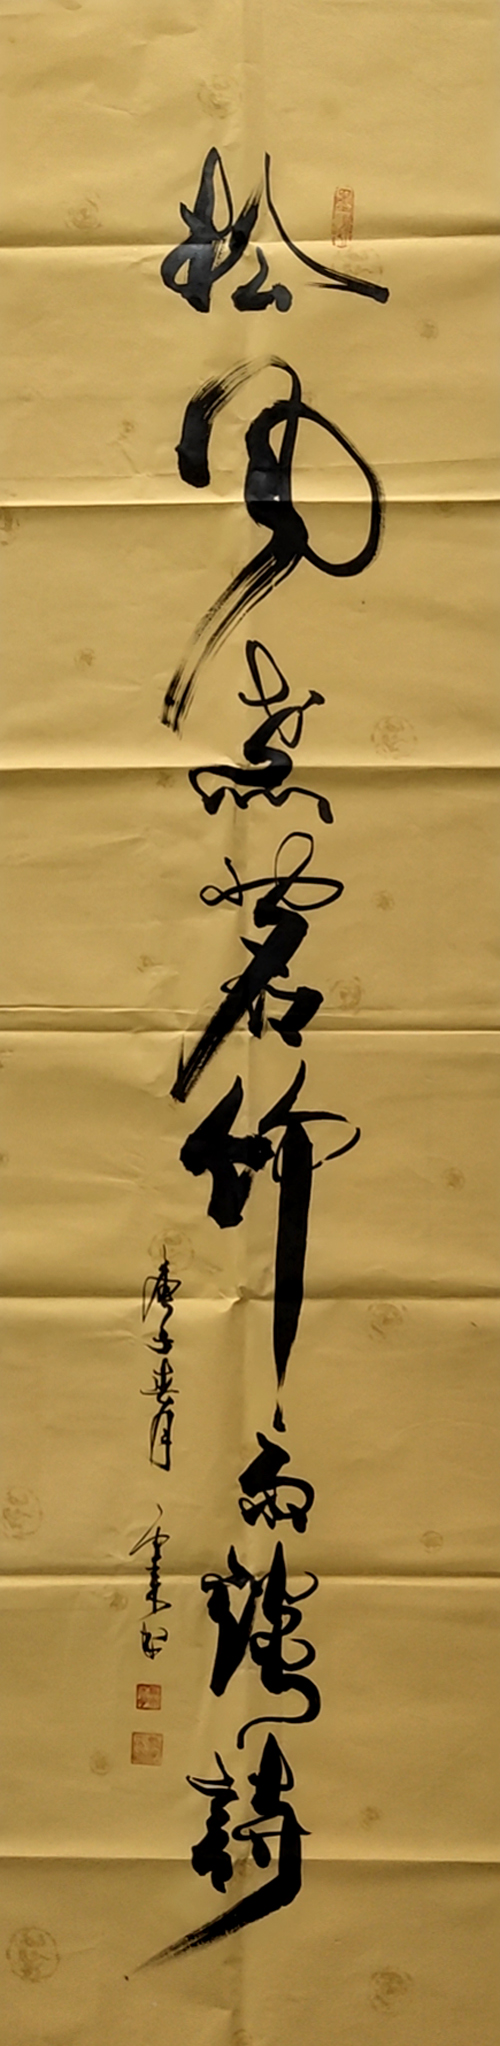 松風煮茗竹雨談詩
庚子春月